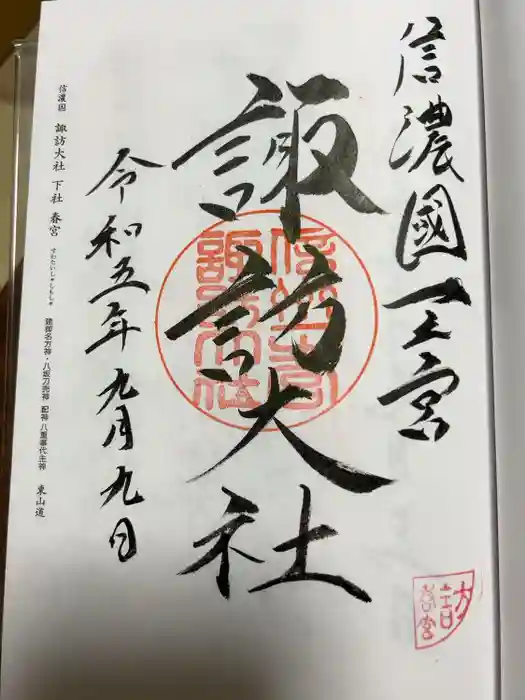 信濃國一之宮
諏訪大社
令和五年九月九日
信濃国 諏訪大社 下社 春宮 すわたいしゃしもしゃ 建御名方神・八坂刀売神 配神 八重事代主神 東山道
信濃國一之宮
諏訪大社
諏訪
春宮